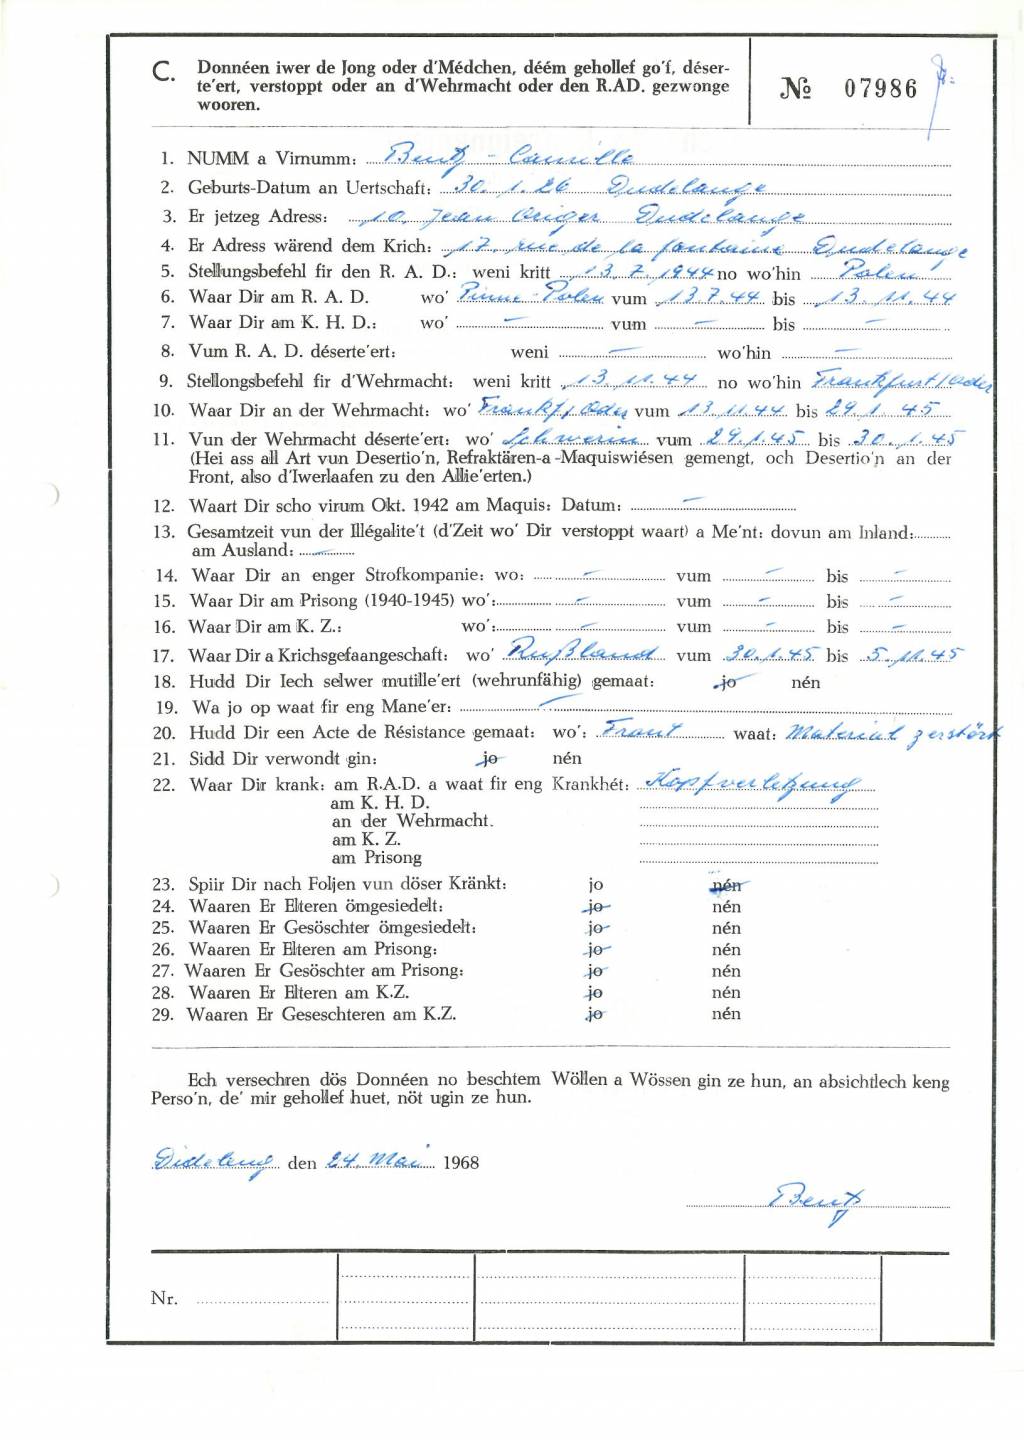 C. Donnéen iwer de Jong oder d'Médchen, déém gehollef go'f, déser-
te'ert, verstoppt oder an d'Wehrmacht oder den R.AD. gezwonge
wooren.
№ 07986
1. NUMM a Virnumm: Bentz - Camille
2. Geburts-Datum an Uertschaft: 30. 1. 26 Dudelange
3. Er jetzeg Adress: 10, Jean Origer Dudelange
4. Er Adress wärend dem Krich: 17, rue de la fontaine Dudelange
5. Stellungsbefehl fir den R. A. D.: weni kritt 13. 7. 1944 no wo'hin Polen
6. Waar Dir am R. A. D. wo' Pinne-Polen vum 13.7.44 bis 13. 11. 44
7. Waar Dir am K. H. D.: wo' — vum — bis —
8. Vum R. A. D. déserte'ert: weni — wo'hin —
9. Stellongsbefehl fir d'Wehrmacht: weni kritt 13. 11. 44 no wo'hin Frankfurt/Oder
10. Waar Dir an der Wehrmacht: wo' Frankf/Oder vum 13.11.44 bis 29.1. 45
11. Vun der Wehrmacht déserte'ert: wo' Schwerin vum 29.1.45 bis 30. 1.45
(Hei ass all Art vun Desertio'n, Refraktären-a-Maquiswiésen gemengt, och Desertio'n an der
Front, also d'Iwerlaafen zu den Allie'erten.)
12. Waart Dir scho virum Okt. 1942 am Maquis: Datum: —
13. Gesamtzeit vun der Illégalite't (d'Zeit wo' Dir verstoppt waart) a Me'nt: dovun am Inland:
am Ausland: —
14. Waar Dir an enger Strofkompanie: wo: — vum — bis —
15. Waar Dir am Prisong (1940-1945) wo': — vum — bis —
16. Waar Dir am K. Z.: wo': — vum — bis —
17. Waar Dir a Krichsgefaangeschaft: wo' Rußland vum 30.1.45 bis 5. 11. 45
18. Hudd Dir Iech selwer mutille'ert (wehrunfähig) gemaat: jo nén
19. Wa jo op waat fir eng Mane'er: —
20. Hudd Dir een Acte de Résistance gemaat: wo': Front waat: Material zerstört
21. Sidd Dir verwondt gin: jo nén
22. Waar Dir krank: am R.A.D. a waat fir eng Krankhét: Kopfverletzung
am K. H. D.
an der Wehrmacht.
am K. Z.
am Prisong
23. Spiir Dir nach Foljen vun döser Kränkt: jo nén
24. Waaren Er Elteren ömgesiedelt: jo nén
25. Waaren Er Gesöschter ömgesiedelt: jo nén
26. Waaren Er Elteren am Prisong: jo nén
27. Waaren Er Gesöschter am Prisong: jo nén
28. Waaren Er Elteren am K.Z. jo nén
29. Waaren Er Geseschteren am K.Z. jo nén
Ech versechren dös Donnéen no beschtem Wöllen a Wössen gin ze hun, an absichtlech keng
Perso'n, de' mir gehollef huet, nöt ugin ze hun.
Dideleng den 24. Mai 1968
Bentz
Nr.